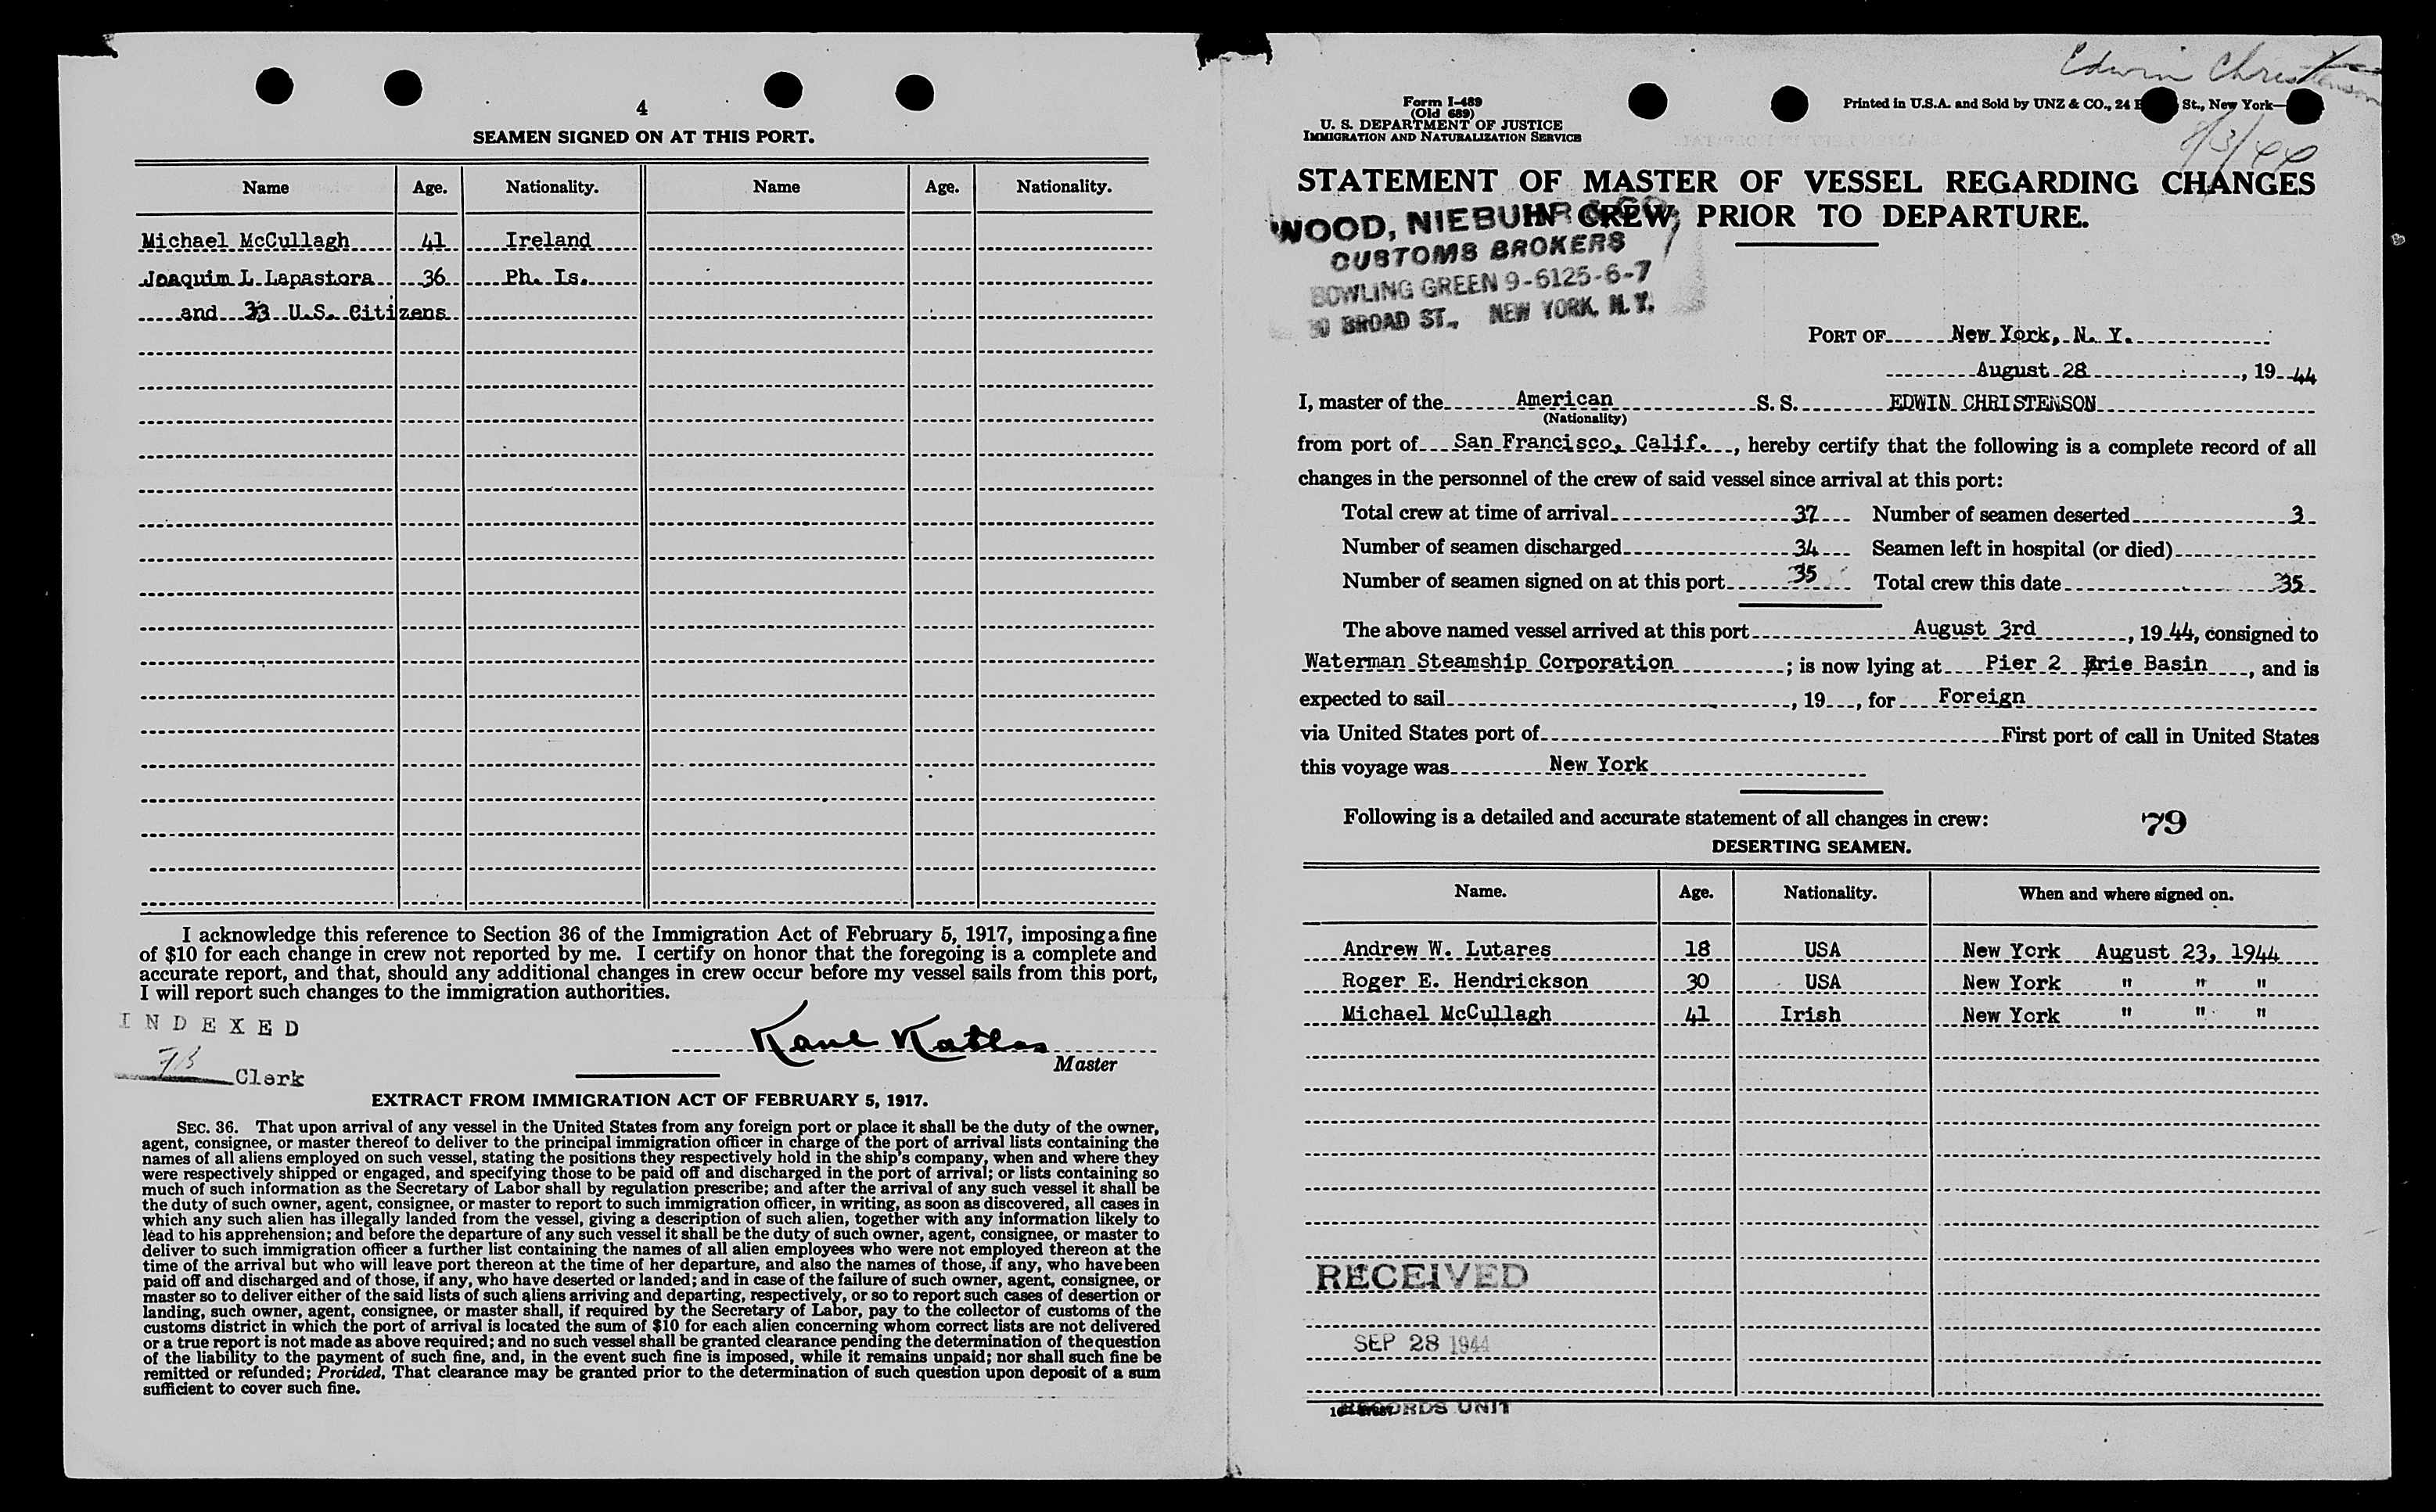 4
SEAMEN SIGNED ON AT THIS PORT.
Name Age. Nationality. Name Age. Nationality.
Michael McCullagh 41 Ireland
Joaquim L Lapastora 36 Ph. Is.
and 33 U.S. Citizens
I acknowledge this reference to Section 36 of the Immigration Act of February 5, 1917, imposing a fine
of $10 for each change in crew not reported by me. I certify on honor that the foregoing is a complete and
accurate report, and that, should any additional changes in crew occur before my vessel sails from this port,
I will report such changes to the immigration authorities.
INDEXED
Clerk
Master
EXTRACT FROM IMMIGRATION ACT OF FEBRUARY 5, 1917.
SEC. 36. That upon arrival of any vessel in the United States from any foreign port or place it shall be the duty of the owner,
agent, consignee, or master thereof to deliver to the principal immigration officer in charge of the port of arrival lists containing the
names of all aliens employed on such vessel, stating the positions they respectively hold in the ship's company, when and where they
were respectively shipped or engaged, and specifying those to be paid off and discharged in the port of arrival; or lists containing so
much of such information as the Secretary of Labor shall by regulation prescribe; and after the arrival of any such vessel it shall be
the duty of such owner, agent, consignee, or master to report to such immigration officer, in writing, as soon as discovered, all cases in
which any such alien has illegally landed from the vessel, giving a description of such alien, together with any information likely to
lead to his apprehension; and before the departure of any such vessel it shall be the duty of such owner, agent, consignee, or master to
deliver to such immigration officer a further list containing the names of all alien employees who were not employed thereon at the
time of the arrival but who will leave port thereon at the time of her departure, and also the names of those, if any, who have been
paid off and discharged and of those, if any, who have deserted or landed; and in case of the failure of such owner, agent, consignee, or
master so to deliver either of the said lists of such aliens arriving and departing, respectively, or so to report such cases of desertion or
landing, such owner, agent, consignee, or master shall, if required by the Secretary of Labor, pay to the collector of customs of the
customs district in which the port of arrival is located the sum of $10 for each alien concerning whom correct lists are not delivered
or a true report is not made as above required; and no such vessel shall be granted clearance pending the determination of the question
of the liability to the payment of such fine, and, in the event such fine is imposed, while it remains unpaid; nor shall such fine be
remitted or refunded; Provided, That clearance may be granted prior to the determination of such question upon deposit of a sum
sufficient to cover such fine.
Edwin Christenson
Form I-489
(Old 689)
U. S. DEPARTMENT OF JUSTICE
IMMIGRATION AND NATURALIZATION SERVICE
Printed in U.S.A. and Sold by UNZ & CO., 24 St., New York—
8/3/44
STATEMENT OF MASTER OF VESSEL REGARDING CHANGES
IN CREW, PRIOR TO DEPARTURE.
WOOD, NIEBUHR & CO.
CUSTOMS BROKERS
BOWLING GREEN 9-6125-6-7
BROAD ST., NEW YORK, N.Y.
PORT OF New York, N. Y.
August 28, 19 44
I, master of the American S. S. EDWIN CHRISTENSON
(Nationality)
from port of San Francisco, Calif., hereby certify that the following is a complete record of all
changes in the personnel of the crew of said vessel since arrival at this port:
Total crew at time of arrival 37 Number of seamen deserted 3
Number of seamen discharged 34 Seamen left in hospital (or died)
Number of seamen signed on at this port 35 Total crew this date 35
The above named vessel arrived at this port August 3rd, 19 44, consigned to
Waterman Steamship Corporation; is now lying at Pier 2 Erie Basin, and is
expected to sail , 19 , for Foreign
via United States port of First port of call in United States
this voyage was New York
Following is a detailed and accurate statement of all changes in crew: 79
DESERTING SEAMEN.
Name. Age. Nationality. When and where signed on.
Andrew W. Lutares 18 USA New York August 23, 1944
Roger E. Hendrickson 30 USA New York " " "
Michael McCullagh 41 Irish New York " " "
RECEIVED
SEP 28 1944
RECORDS UNIT